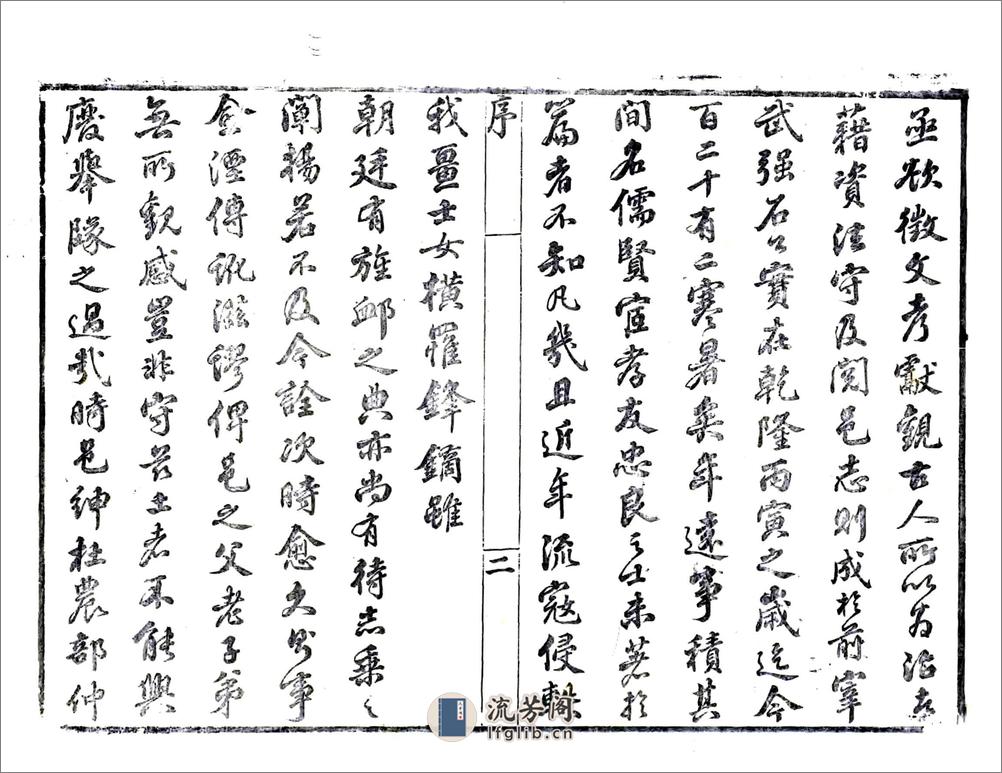 亟欲徵文考獻觀古人所以為治者
藉資法守及閱邑志則成於前宰
武强石公實在乾隆丙寅之歲迄今
百二十有二寒暑矣年遠事積其
間名儒賢宦孝友忠良之士未著於
篇者不知凡幾且近年流寇侵轢
序
二
我畺士女橫罹鋒鏑雖
朝廷有旌卹之典亦尚有待志乘之
闡揚若不及今詮次時愈久則事
全湮傳訛滋謬俾邑之父老子弟
無所觀感豈非守茲土者不能興
廢舉隊之過哉時邑紳杜農部仲
流芳阁
lfglib.cn